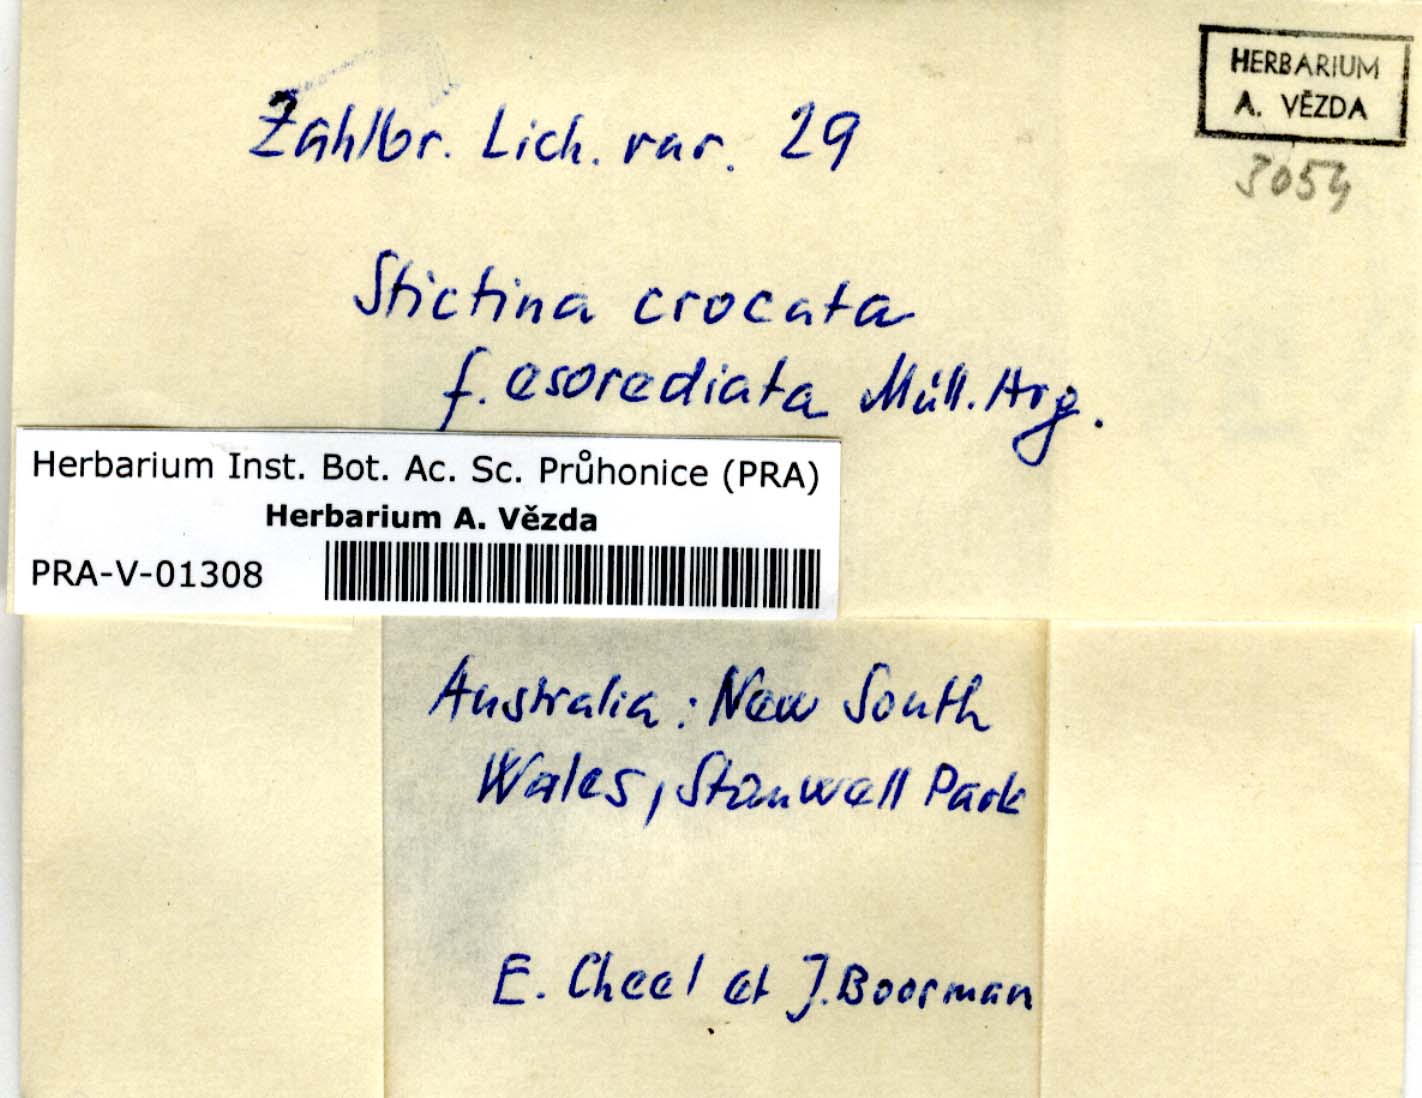 HERBARIUM
A. VĚZDA
Zahlbr. Lich. rar. 29
3054
Stictina crocata
f. esorediata Müll. Arg.
Herbarium Inst. Bot. Ac. Sc. Průhonice (PRA)
Herbarium A. Vězda
PRA-V-01308
Australia: New South
Wales, Stanwell Park
E. Cheel et J. Boorman